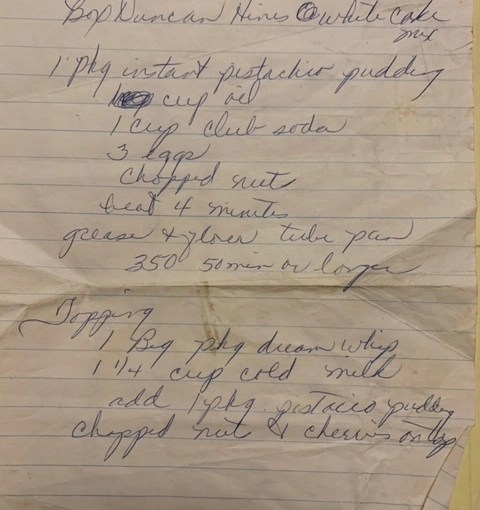 Box Duncan Hines white cake
mix
1 pkg instant pistachio pudding
cup oil
1 cup club soda
3 eggs
chopped nuts
beat 4 minutes
grease & flour tube pan
350 50 min or longer
Topping
1 Big pkg dream whip
1 1/4 cup cold milk
add 1 pkg pistacio pudding
chopped nuts & cherris on top